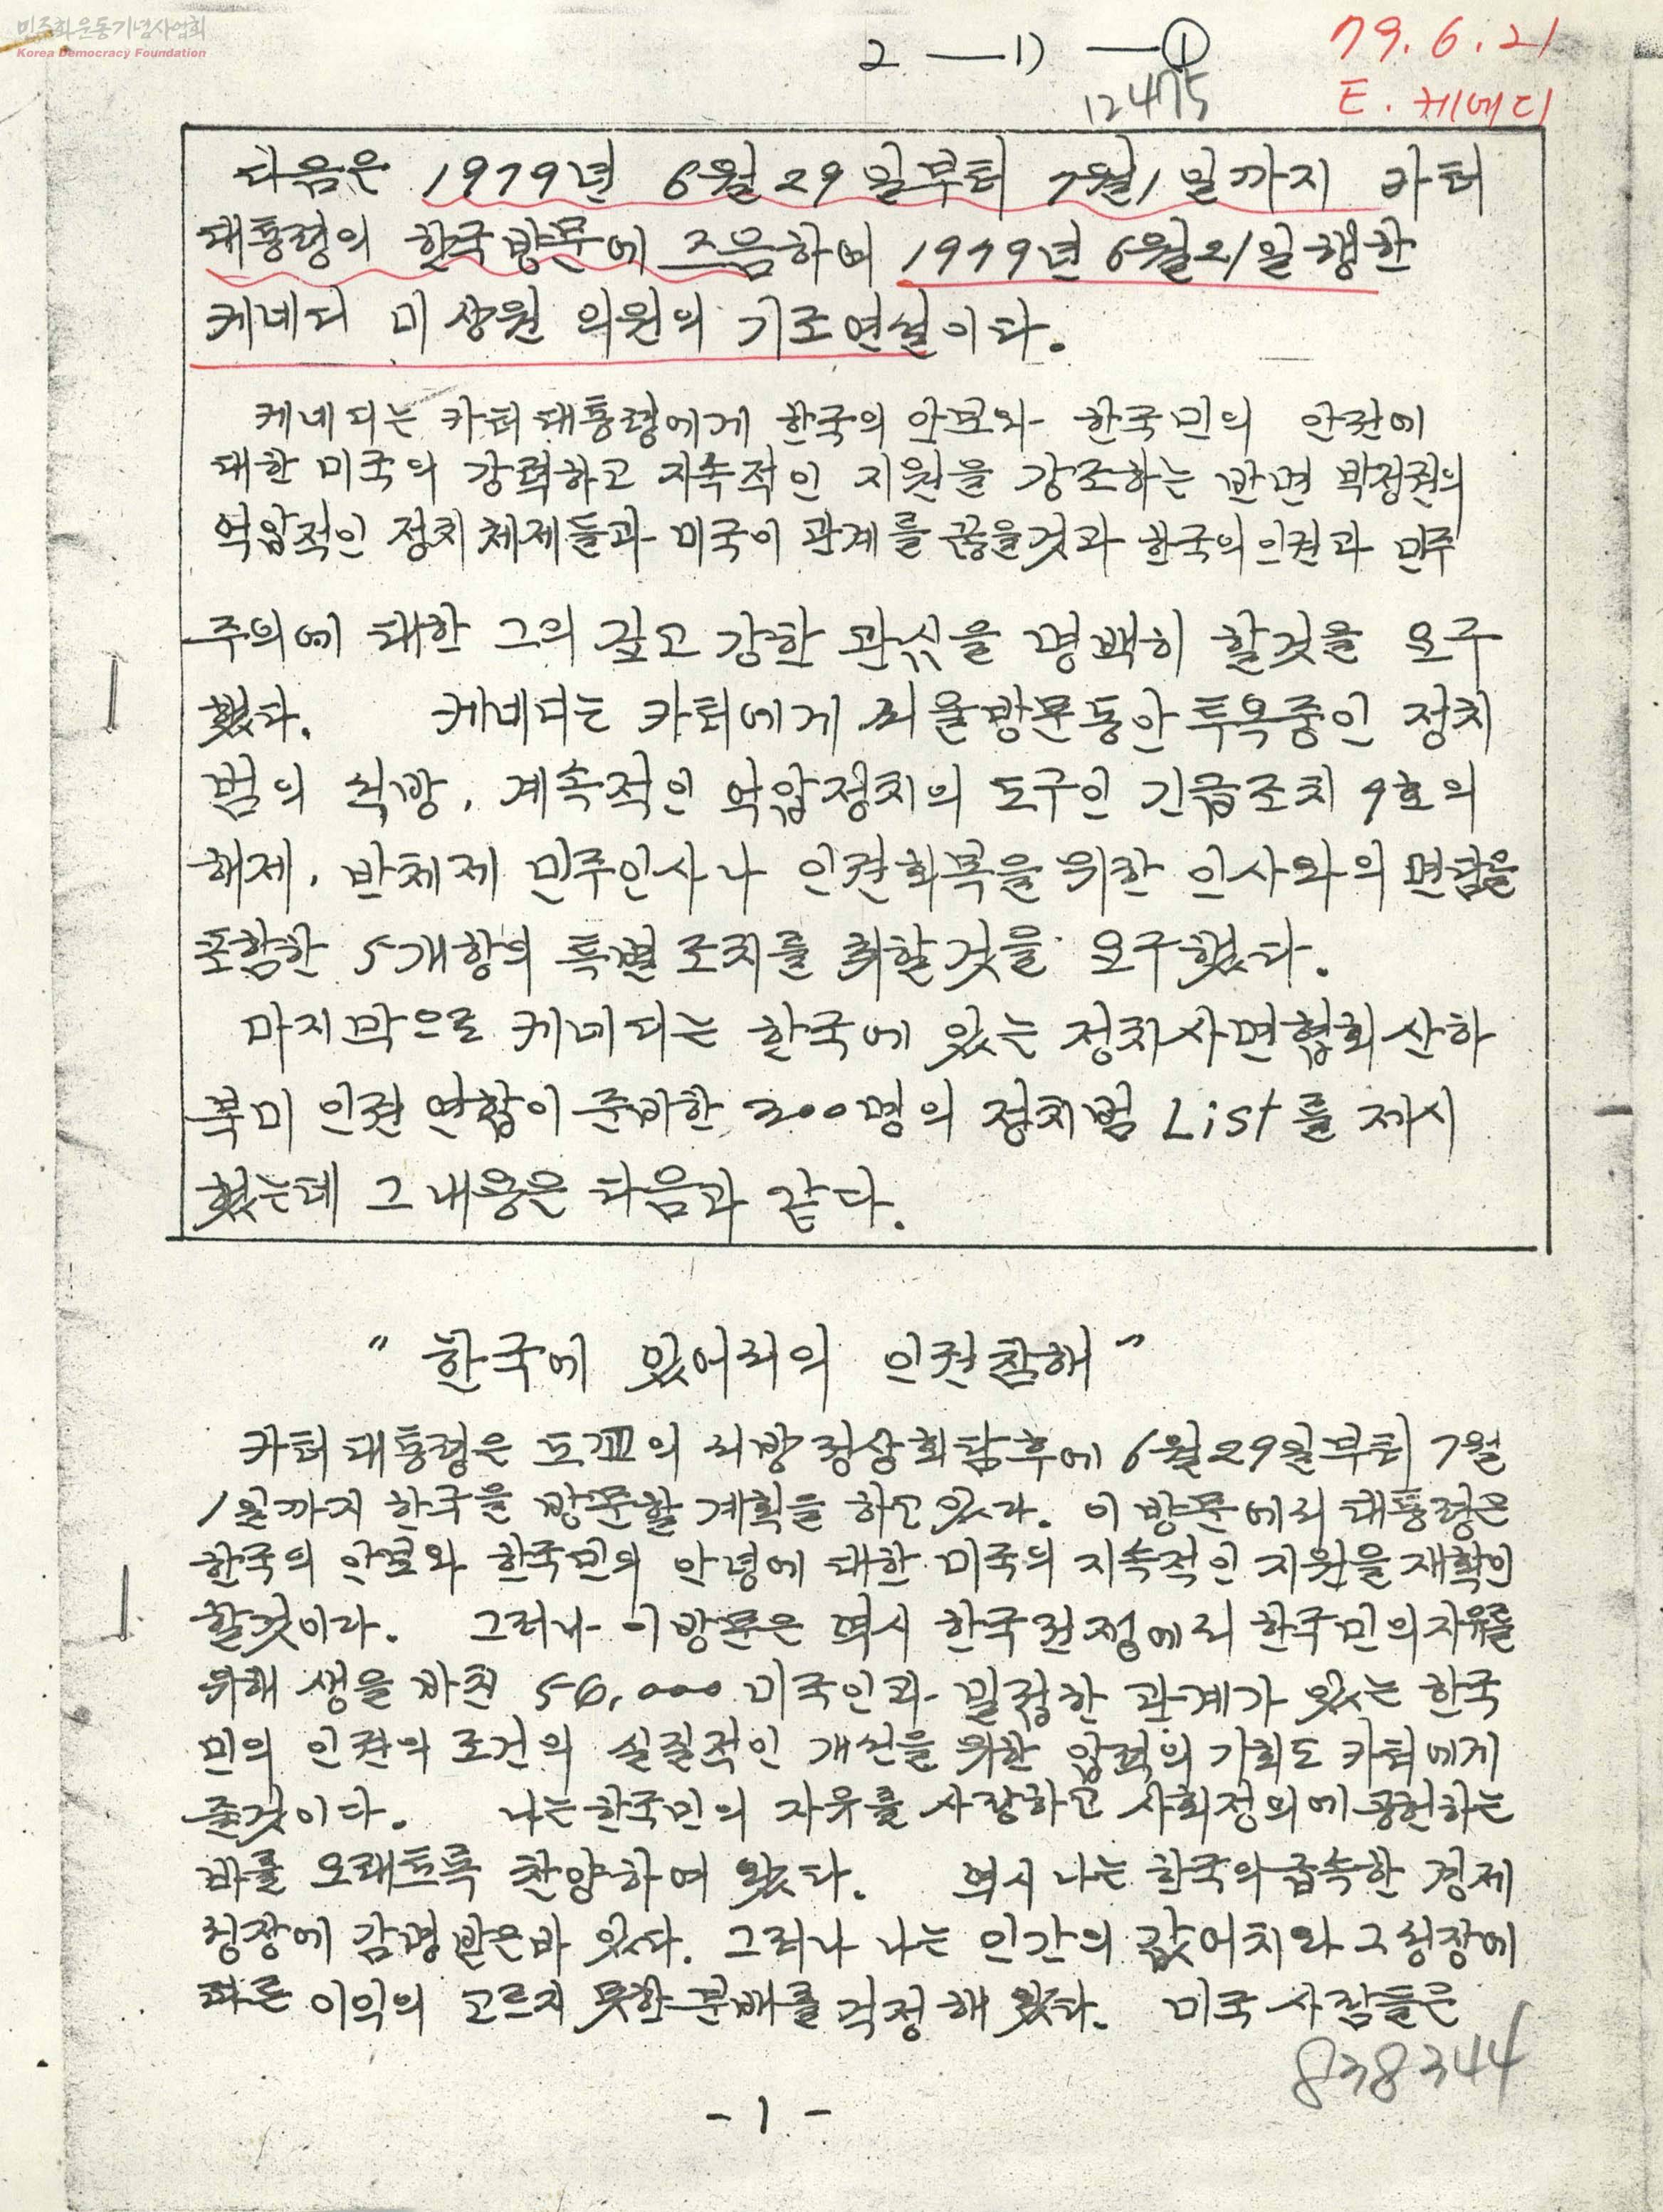 민주화운동기념사업회
Korea Democracy Foundation
2 —1) —①
12475
79. 6. 21
E. 케네디
다음은 1979년 6월 29일부터 7월 1일까지 카터
대통령의 한국방문에 즈음하여 1979년 6월 21일 행한
케네디 미 상원 의원의 기조연설이다.
케네디는 카터대통령에게 한국의 안보와 한국민의 안전에
대한 미국의 강력하고 지속적인 지원을 강조하는 반면 박정권의
억압적인 정치체제들과 미국이 관계를 끊을것과 한국의 인권과 민주
주의에 대한 그의 깊고 강한 관심을 명백히 할것을 요구
했다. 케네디는 카터에게 서울방문동안 투옥중인 정치
범의 석방, 계속적인 억압정치의 도구인 긴급조치 9호의
해제, 반체제 민주인사나 인권회복을 위한 인사와의 면담을
포함한 5개항의 특별조치를 취할것을 요구했다.
마지막으로 케네디는 한국에 있는 정치사면협회산하
북미 인권 연합이 준비한 300명의 정치범 List를 제시
했는데 그 내용은 다음과 같다.
"한국에 있어서의 인권침해"
카터대통령은 도꾜의 서방정상회담후에 6월29일부터 7월
1일까지 한국을 방문할 계획을 하고있다. 이 방문에서 대통령은
한국의 안보와 한국민의 안녕에 대한 미국의 지속적인 지원을 재확인
할것이다. 그러나 이방문은 역시 한국전쟁에서 한국민의자유를
위해 생을 바친 56,000 미국인과 밀접한 관계가 있는 한국
민의 인권의 조건의 실질적인 개선을 위한 압력의 기회도 카터에게
줄것이다. 나는 한국민의 자유를 사랑하고 사회정의에 공헌하는
바를 오래도록 찬양하여 왔다. 역시 나는 한국의 급속한 경제
성장에 감명받은바 있다. 그러나 나는 인간의 값어치와 그 성장에
따른 이익의 고르지 못한 분배를 걱정해 왔다. 미국 사람들은
838344
- 1 -